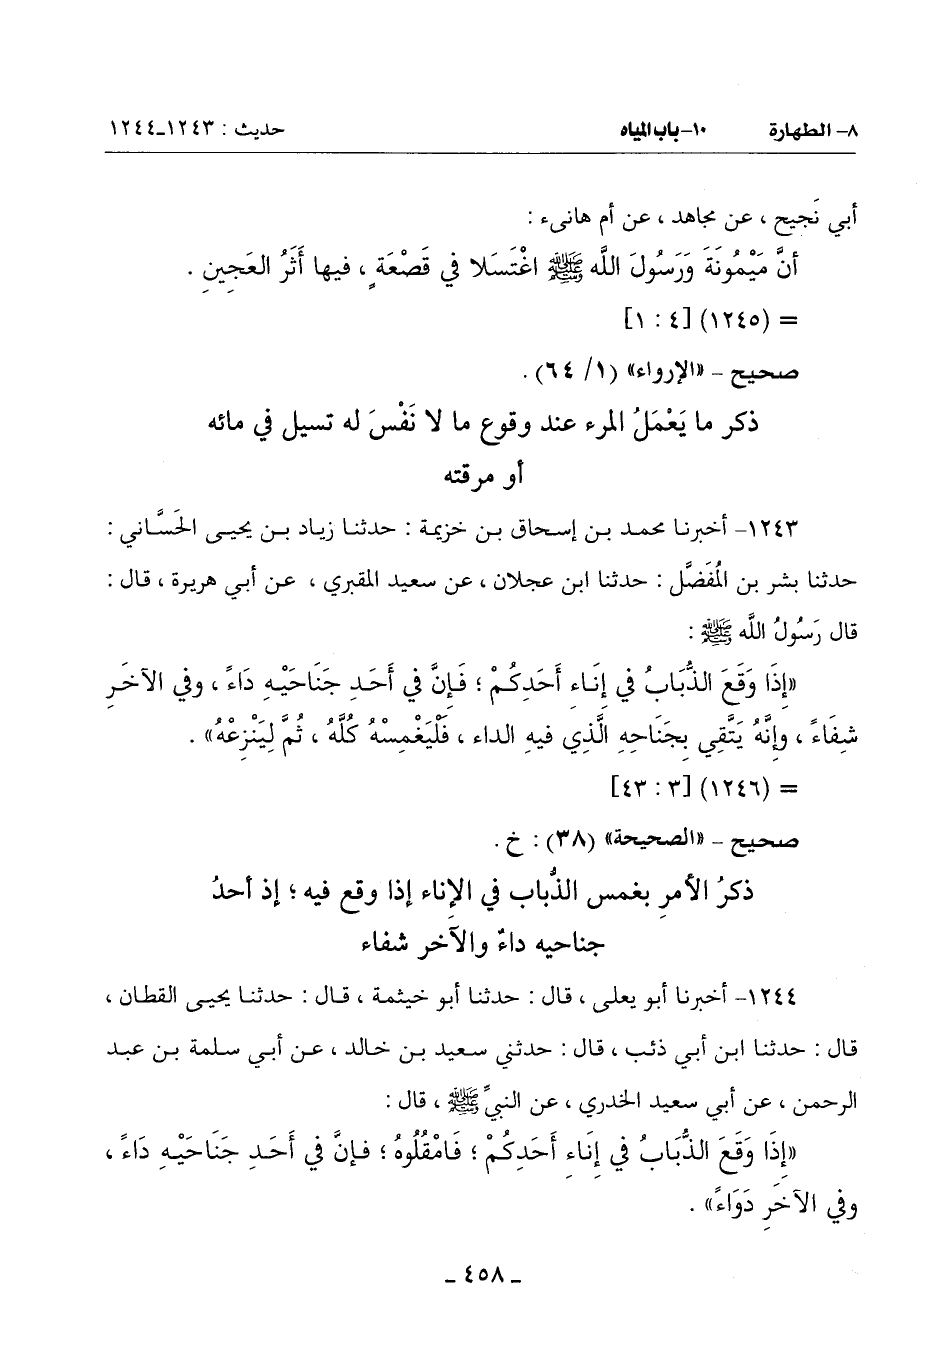 ٨- الطهارة ١٠-باب المياه حديث : ١٢٤٣-١٢٤٤
أبي نَجِيح ، عن مجاهد ، عن أم هانىء :
أنَّ مَيْمُونَةَ وَرَسُولَ اللَّه ﷺ اغْتَسَلا في قَصْعَةٍ ، فيها أَثَرُ العَجِينِ .
= (١٢٤٥) [٤ : ١]
صحيح - «الإرواء» (١/ ٦٤) .
ذكر ما يَعْمَلُ المرء عند وقوع ما لا نَفْسَ له تسيل في مائه
أو مرقته
١٢٤٣- أخبرنا محمد بن إسحاق بن خزيمة : حدثنا زياد بن يحيى الحَسَّاني :
حدثنا بشر بن المُفَضَّل : حدثنا ابن عجلان ، عن سعيد المقبري ، عن أبي هريرة ، قال :
قال رَسُولُ اللَّه ﷺ :
«إِذَا وَقَعَ الذُّبَابُ في إِنَاءِ أَحَدِكُمْ ؛ فَإِنَّ في أَحَدِ جَنَاحَيْهِ دَاءً ، وفي الآخَرِ
شِفَاءً ، وإِنَّهُ يَتَّقِي بِجَنَاحِهِ الَّذِي فيهِ الداء ، فَلْيَغْمِسْهُ كُلَّهُ ، ثُمَّ لِيَنْزِعْهُ» .
= (١٢٤٦) [٣ : ٤٣]
صحيح - «الصحيحة» (٣٨) : خ .
ذكرُ الأمرِ بغمس الذُّباب في الإناء إذا وقع فيه ؛ إذ أحدُ
جناحيه داءٌ والآخر شفاء
١٢٤٤- أخبرنا أبو يعلى ، قال : حدثنا أبو خيثمة ، قال : حدثنا يحيى القطان ،
قال : حدثنا ابن أبي ذئب ، قال : حدثني سعيد بن خالد ، عن أبي سلمة بن عبد
الرحمن ، عن أبي سعيد الخدري ، عن النبيِّ ﷺ ، قال :
«إِذَا وَقَعَ الذُّبَابُ في إِنَاءِ أَحَدِكُمْ ؛ فَامْقُلُوهُ ؛ فإنَّ في أَحَدِ جَنَاحَيْهِ دَاءً ،
وفي الآخَرِ دَوَاءً» .
- ٤٥٨ -